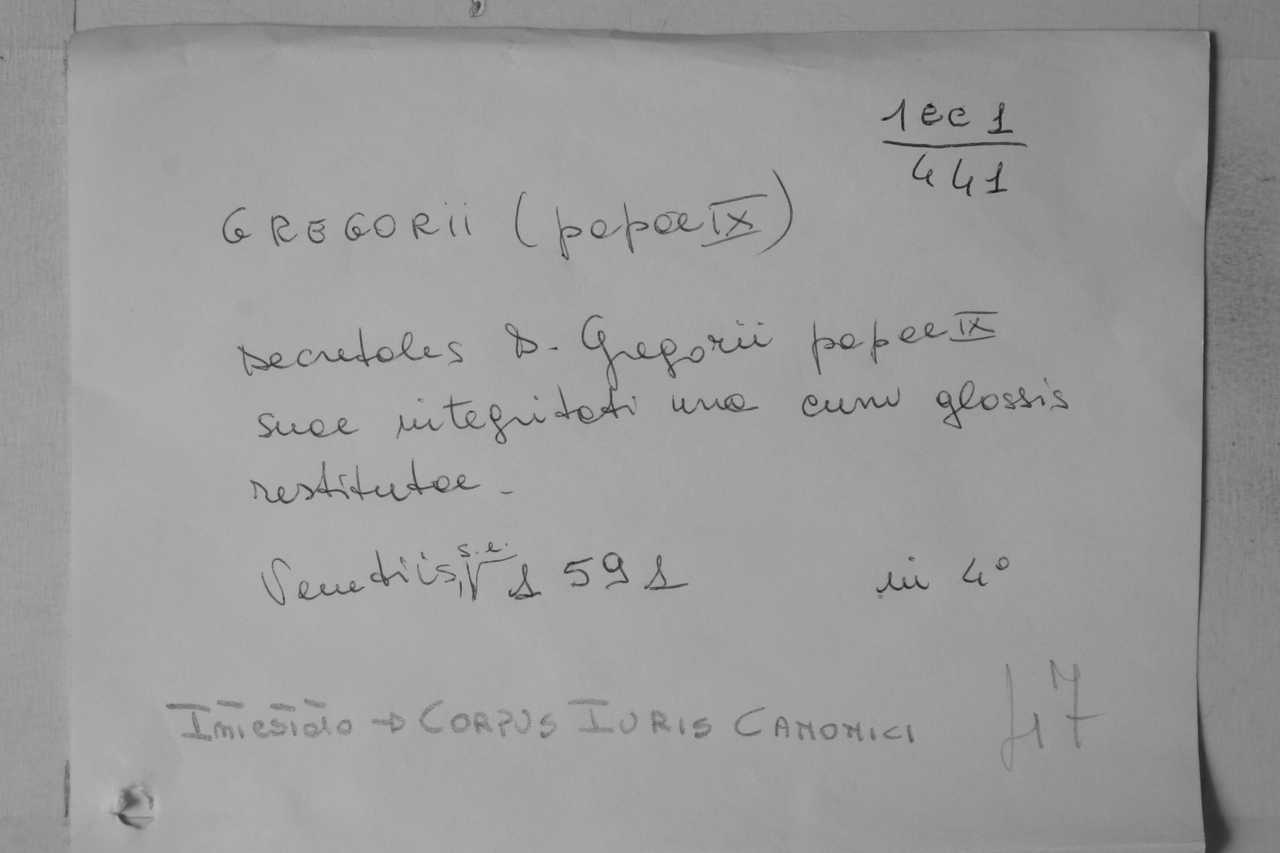 1 ec 1
441
GREGORii (papae IX)
Decretales D. Gregorii papae IX
suae integritati una cum glossis
restitutae.
Venetiis, s.e. 1591 in 4°
CORPUS IURIS CANONICI